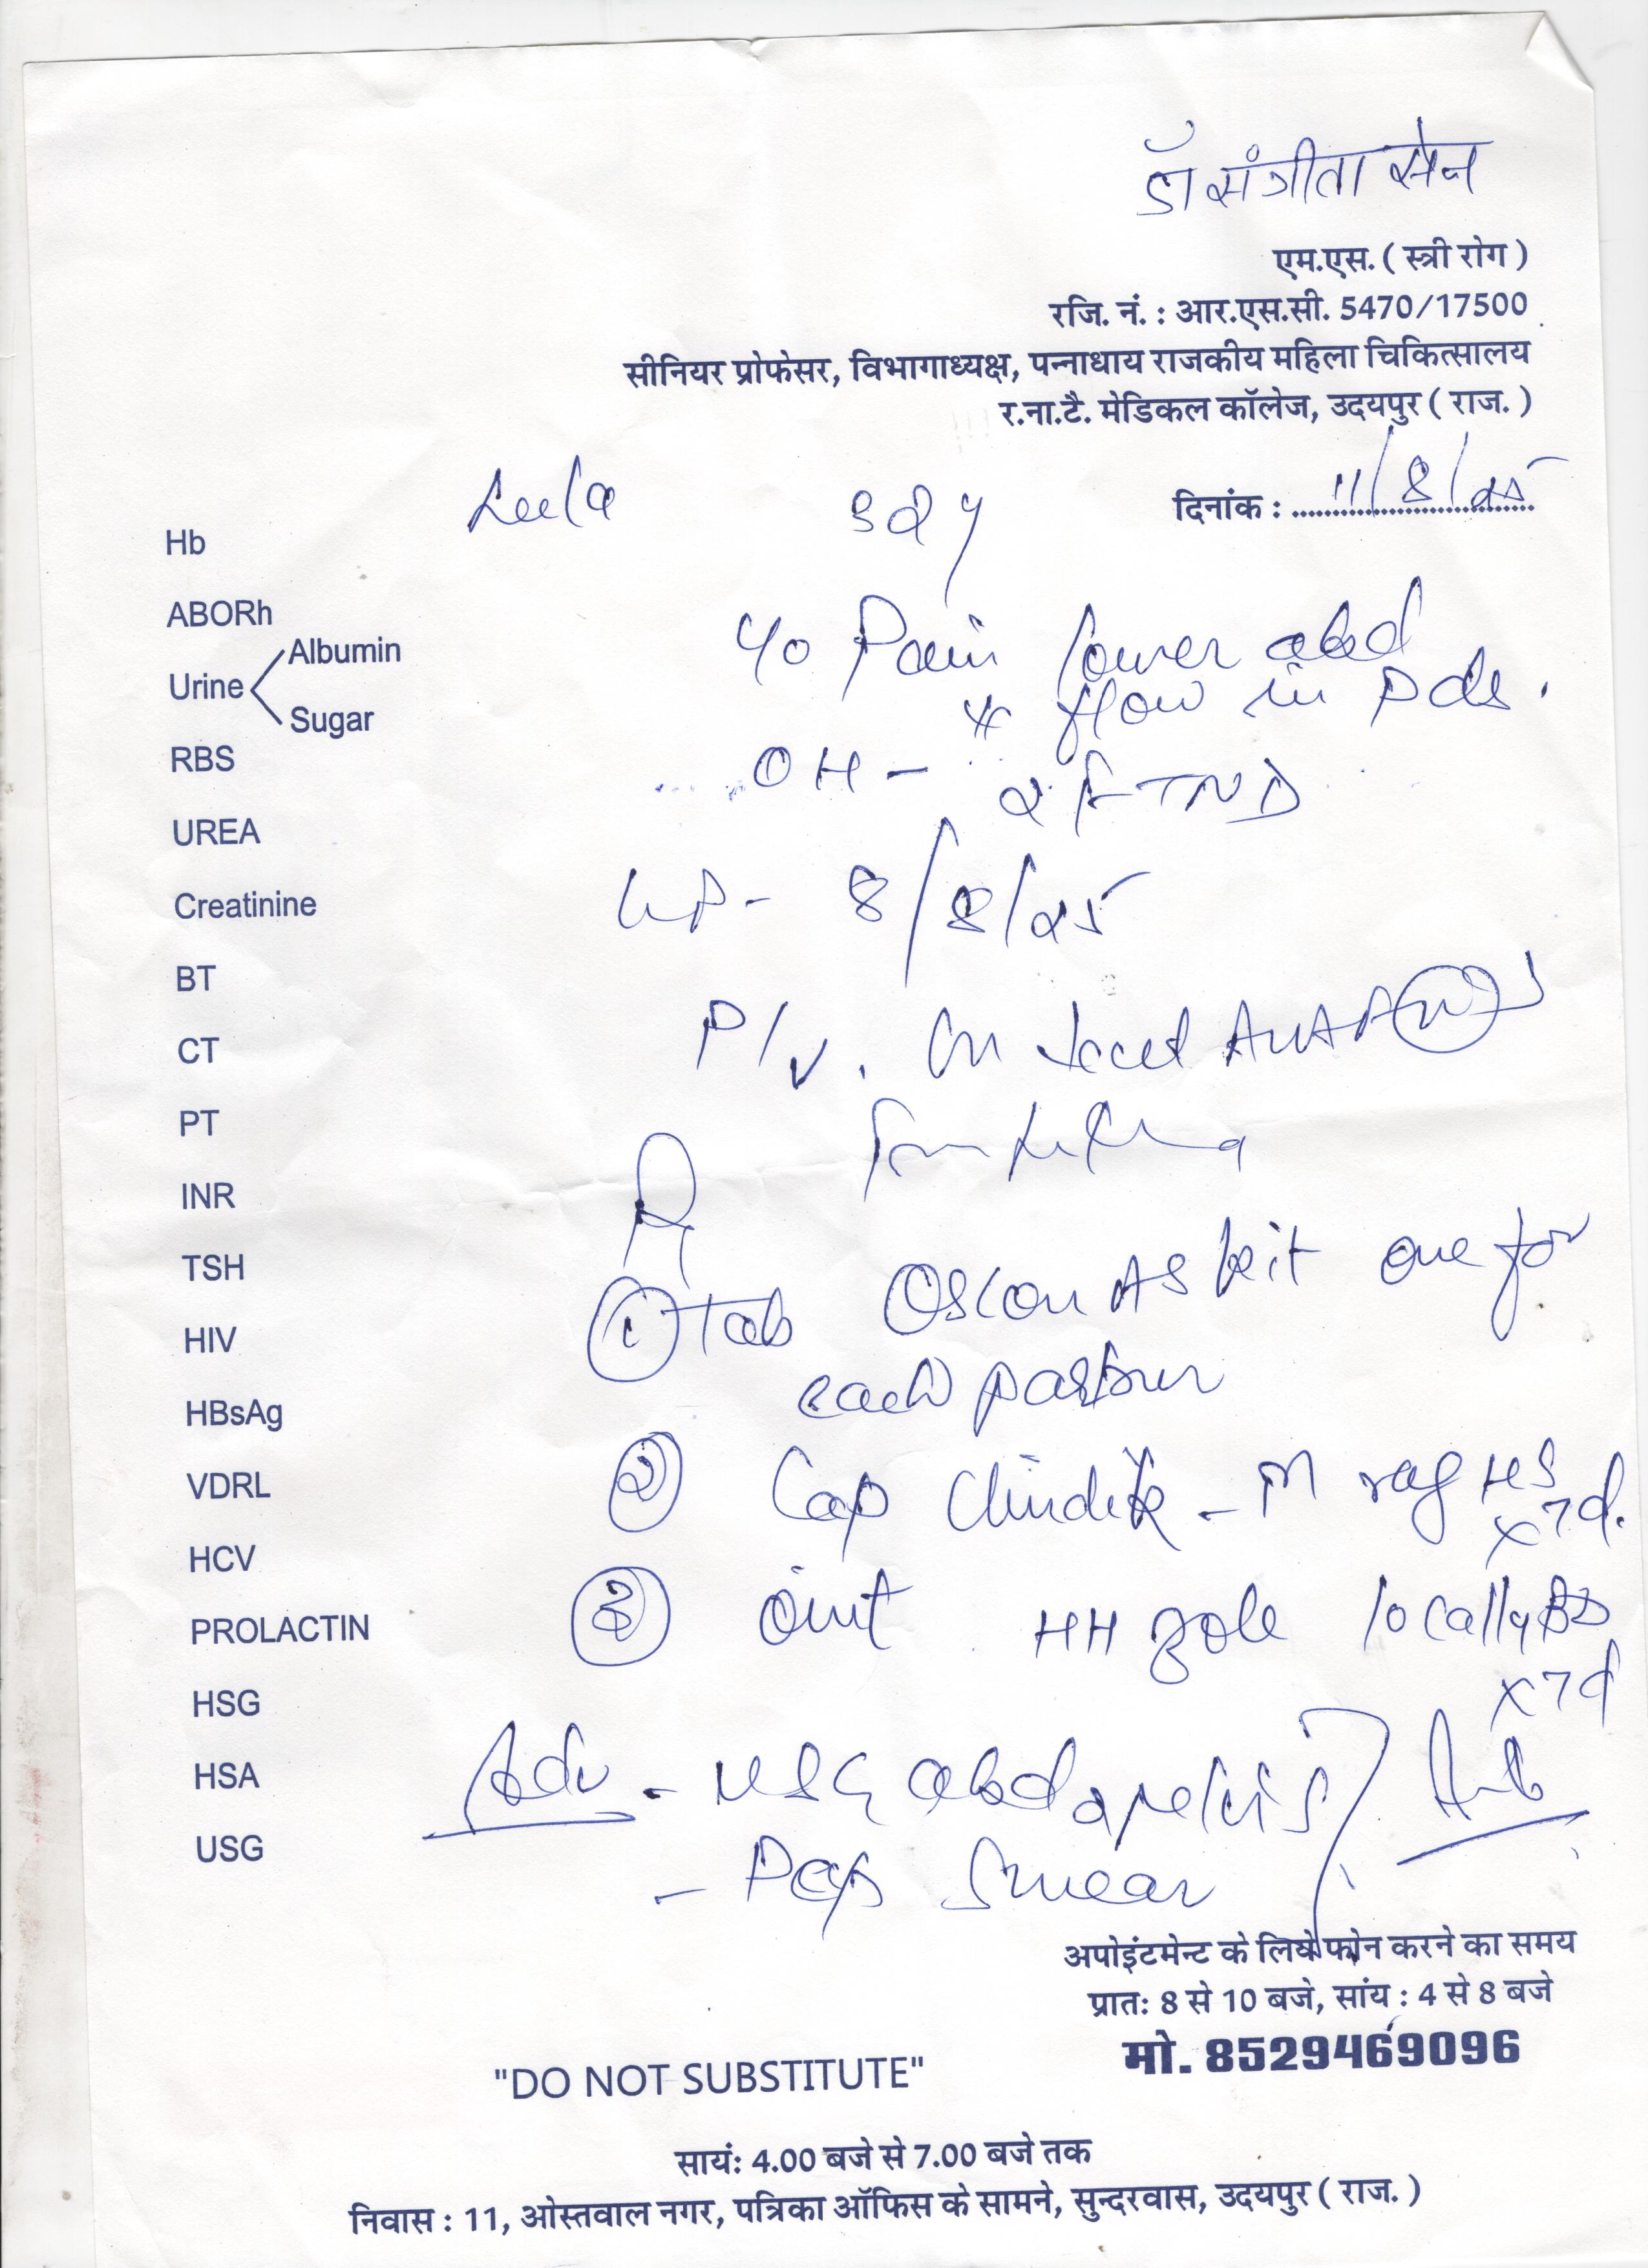 डॉ संगीता सेन
एम.एस. ( स्त्री रोग )
रजि. नं. : आर.एस.सी. 5470/17500
सीनियर प्रोफेसर, विभागाध्यक्ष, पन्नाधाय राजकीय महिला चिकित्सालय
र.ना.टै. मेडिकल कॉलेज, उदयपुर ( राज. )
दिनांक : 11/8/25
Leela
Hb
ABORh
Urine
Albumin
Sugar
RBS
UREA
Creatinine
BT
CT
PT
INR
TSH
HIV
HBsAg
VDRL
HCV
PROLACTIN
HSG
HSA
USG
Pain lower abd
flow in pds.
OH -
2 FTND
LMP- 8/8/25
P/V.
Rx
① Tab Oscon AS kit one for
each partner
② Cap - M vag HS
x7d.
③ oint HH zole locally BD
x7d
Adv - USG abd & pelvis
- Pap Smear
अपोइंटमेन्ट के लिये फोन करने का समय
प्रातः 8 से 10 बजे, सांय : 4 से 8 बजे
मो. 8529469096
"DO NOT SUBSTITUTE"
सायंः 4.00 बजे से 7.00 बजे तक
निवास : 11, ओस्तवाल नगर, पत्रिका ऑफिस के सामने, सुन्दरवास, उदयपुर ( राज. )